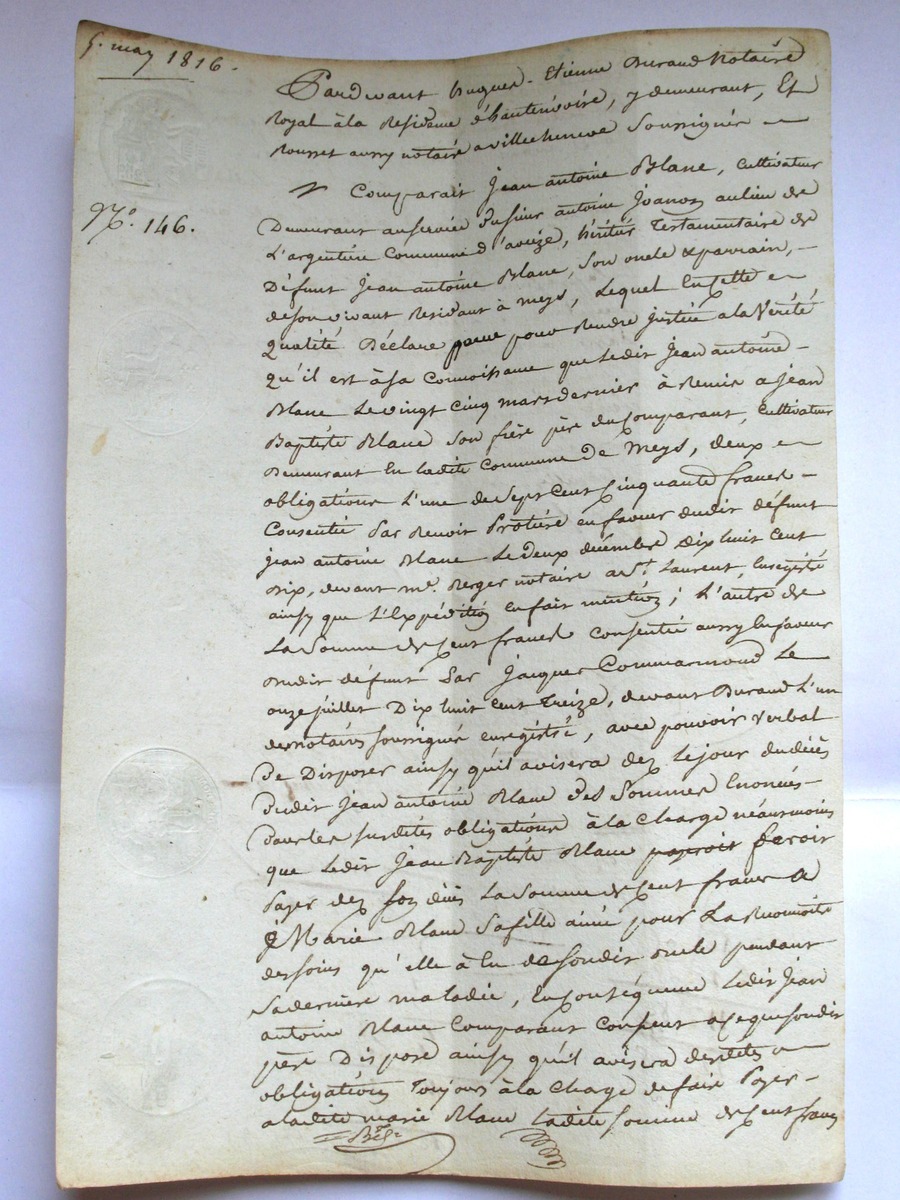 5. may 1816.
Pardevant hugues-Etienne Durand Notaire
Royal à la Residence d'hauterivoire, y demeurant, Et
Rousset aussy notaire a villecheneve Soussignés
N°. 146.
Comparait Jean antoine Blanc, Cultivateur
Demeurant au service du sieur antoine Joanon au lieu de
L'argentiere Commune d'aveize, héritier Testamentaire de
Défunt Jean antoine Blanc, son oncle & parrain,
de son vivant Residant à meys, Lequel En cette
qualité Déclare pour Rendre justice a la Vérité
qu'il est à sa Connoissance que Ledit Jean antoine
Blanc Le vingt cinq mars dernier à Remis a Jean
Baptiste Blanc son frère père du Comparant, Cultivateur
Demeurant En ladite Commune de Meys, deux
obligations L'une de Sept Cent Cinquante francs
Consentie Par Benoit Protière en faveur dudit défunt
jean antoine Blanc Le deux décembre Dix huit Cent
dix, devant me. Berger notaire a St. Laurent, Enregistré
ainsy que L'Expédition En fait mention; L'autre de
La Somme de Cent francs Consentie aussy En faveur
dudit défunt Par Jacques Commarmond Le
onze juillet Dix huit Cent Treize, devant Durand L'un
des notaires soussignés enregistré, avec pouvoir verbal
De Disposer ainsy qu'il avisera dez Le jour du décés
Dudit Jean antoine Blanc des Sommes Enoncées
Dans les susdites obligations à la Charge néansmoins
que Ledit Jean Baptiste Blanc feroit
Payer dez son décés La Somme de Cent francs a
Marie Blanc Sa fille ainée pour La
des soins qu'elle à Eu de sondit oncle pendant
Sa derniere maladie, En Conséquence Ledit Jean
antoine Blanc Comparant Consent a ce que sondit
père Dispose ainsy qu'il avisera desdites
obligations Toujours à la Charge de faire Payer
a ladite marie Blanc Ladite Somme de Cent francs